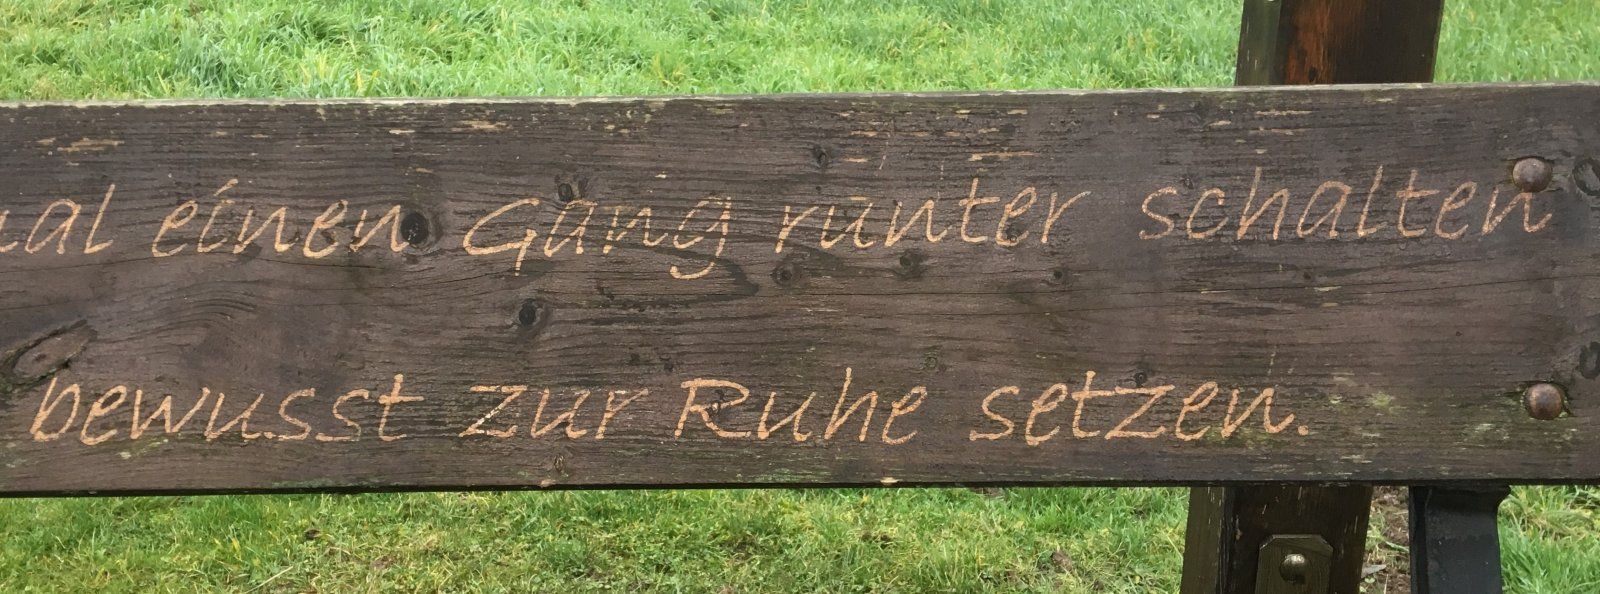 al einen Gang runter schalten
bewusst zur Ruhe setzen.